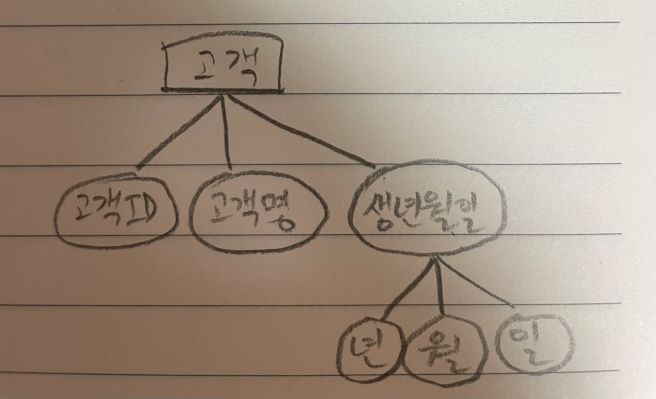 고객
고객ID 고객명 생년월일
년 월 일